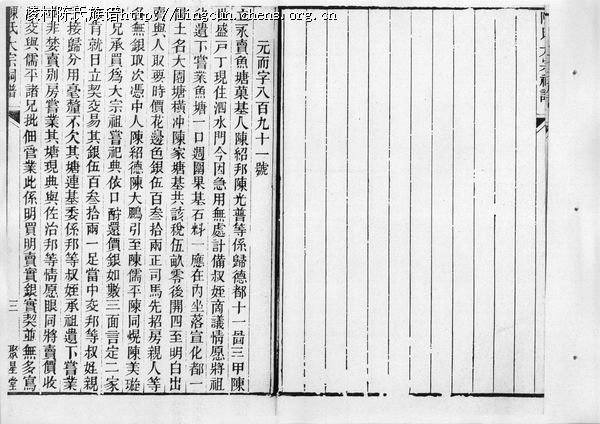 凌村陈氏族谱 http://lingcun.chens.org.cn
陳氏大宗祠譜
元而字八百九十一號
立永賣魚塘菓基人陳紹邦陳光普等係歸德都十一圖三甲陳
盛戶丁現住泗水門今因急用無處計備叔姪商議情愿將祖
遺下嘗業魚塘一口週圍果基石料一應在內坐落宣化都一
土名大園塘橫冲陳家塘基共該稅伍畝零後開四至明白出
賣與人取要時價花邊色銀伍百叁拾兩正司馬先招房親人等
各無銀取次憑中人陳紹德陳大鵬引至陳儒平陳同熀陳美璇
兄承買為大宗祖嘗祀典依口酧還價銀如數三面言定二家
肯就日立契交易其銀伍百叁拾兩一足當中交邦等叔姪親
接歸分用毫釐不欠其塘連基委係邦等叔姪承祖遺下嘗業
非婪賣別房嘗業其塘現典與佐治邦等情愿眼同將賣價收
交與儒平諸兄批佃營業此係明買明賣實銀實契並無多寫
陳氏大宗祠譜
三
聚星堂